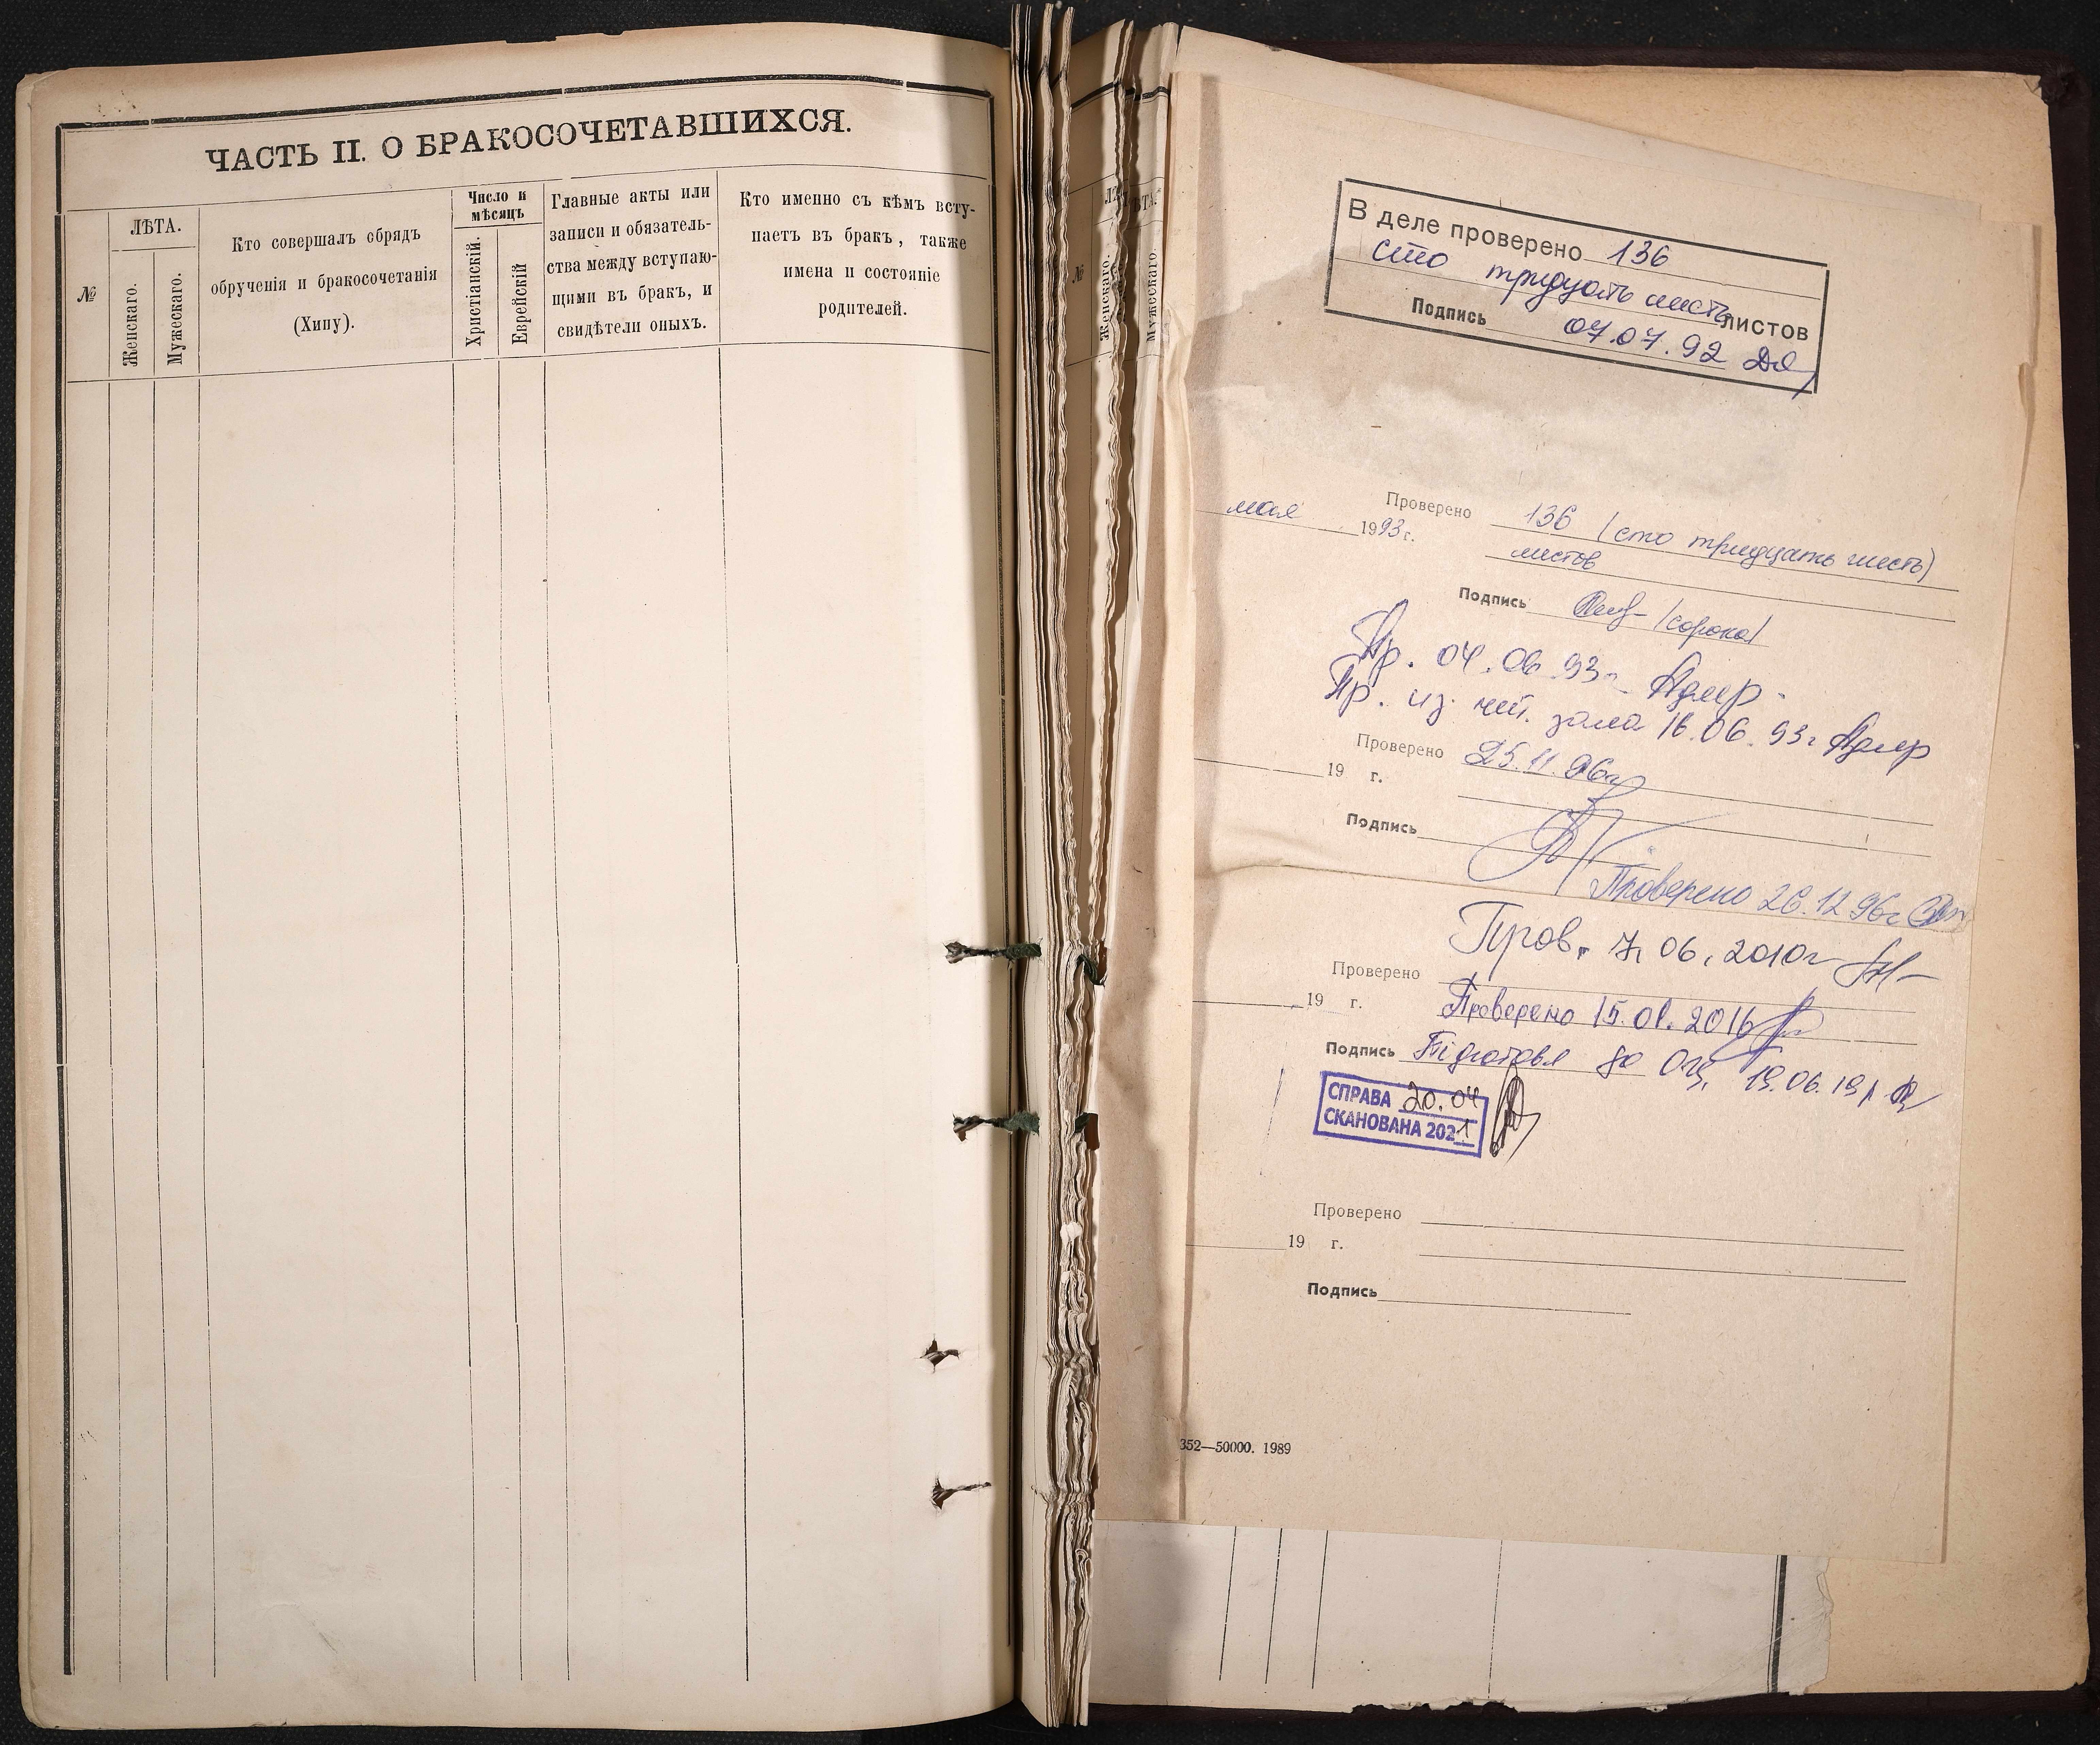 ЧАСТЬ II. О БРАКОСОЧЕТАВШИХСЯ.
№
ЛѢТА.
Женскаго.
Мужескаго.
Кто совершалъ обрядъ
обрученія и бракосочетанія
(Хипу).
Число и
мѣсяцъ
Христіанскій.
Еврейскій
Главные акты или
записи и обязатель-
ства между вступаю-
щими въ бракъ, и
свидѣтели оныхъ.
Кто именно съ кѣмъ всту-
паетъ въ бракъ, также
имена и состояніе
родителей.
№
Женскаго.
Мужескаго.
В деле проверено 136
сто тридцать шесть листов
Подпись 07.07.92
мая 1993 г.
Проверено 136 (сто тридцать шесть)
листов
Подпись /сорока/
Пр. 04.06.93г.
Пр. из чит. зала 16.06.93г
Проверено 25.11.96г
19 г.
Подпись
Проверено 26.12.96г
Пров. 7.06.2010г
Проверено
19 г.
Проверено 15.01.2016
Подпись Підготовл до 19.06.19
СПРАВА 20.04
СКАНОВАНА 2021
Проверено
19 г.
Подпись
352—50000. 1989